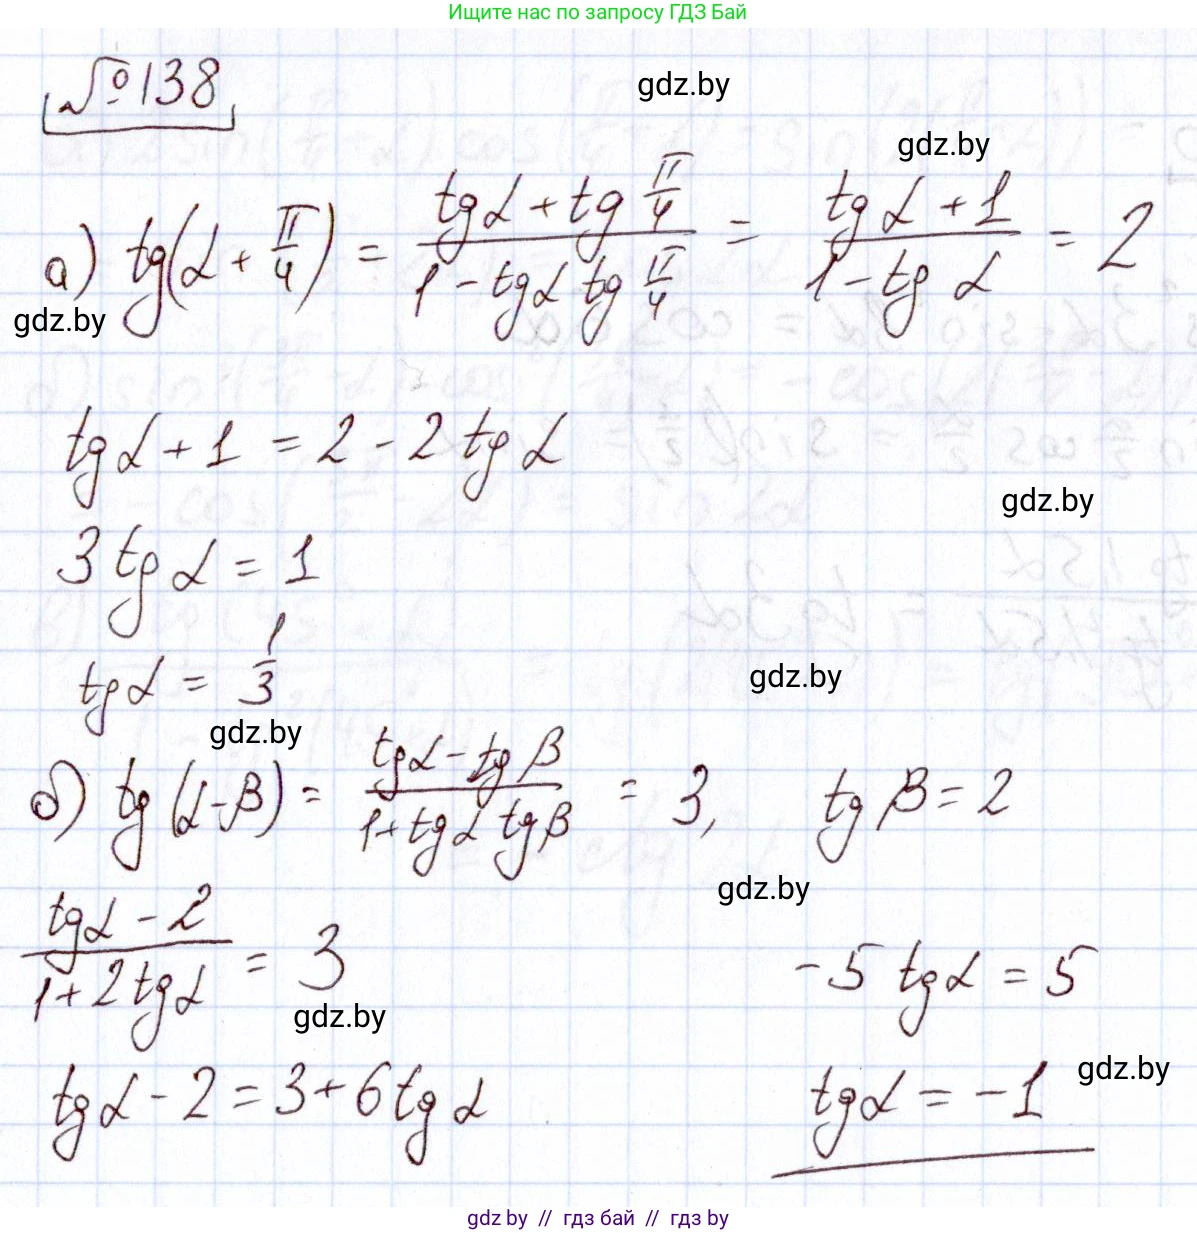 Ищите нас по запросу ГДЗ Бай
№138
gdz.by
gdz.by
а) tg(α + π/4) = (tgα + tg π/4)/(1 - tgα tg π/4) = (tg α + 1)/(1 - tg α) = 2
gdz.by
tgα + 1 = 2 - 2 tg α
gdz.by
3 tg α = 1
tgα = 1/3
gdz.by
gdz.by
б) tg (α - β) = (tgα - tg β)/(1 + tgα tgβ) = 3, tg β = 2
gdz.by
(tgα - 2)/(1 + 2 tgα) = 3
-5 tgα = 5
gdz.by
gdz.by
tgα - 2 = 3 + 6 tg α
tgα = -1
gdz by // гдз бай // гдз by